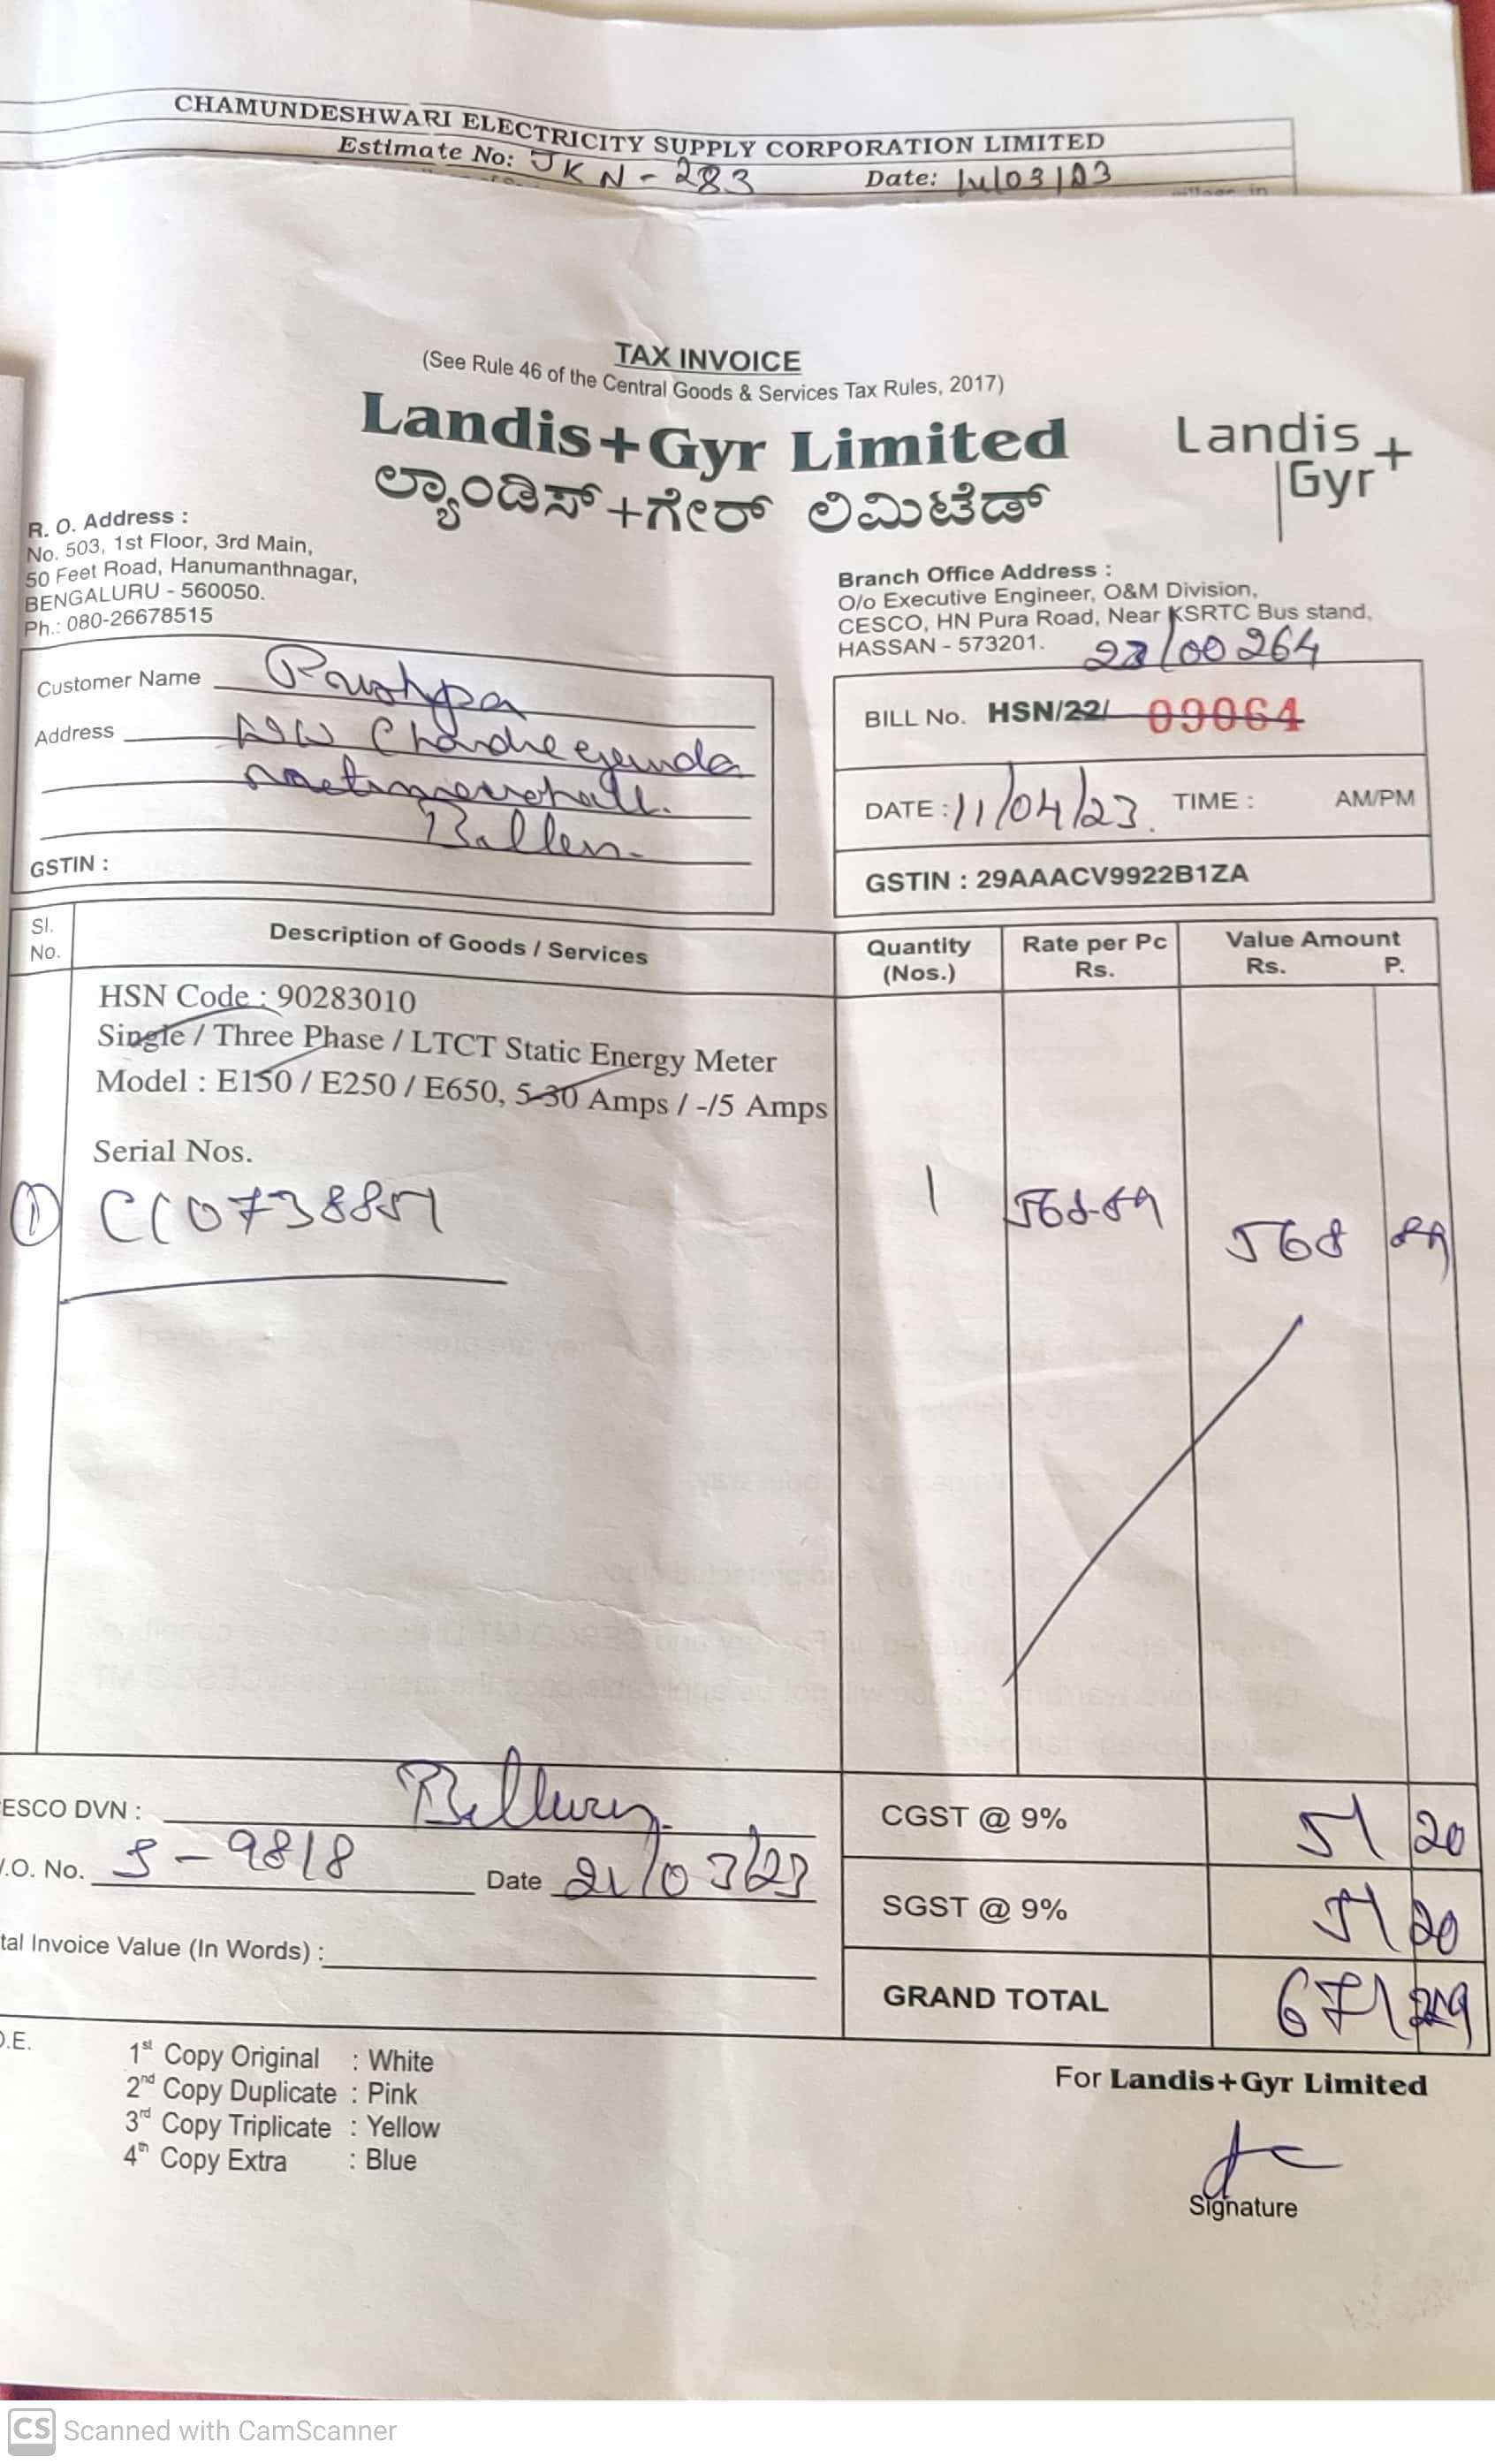 CHAMUNDESHWARI ELECTRICITY SUPPLY CORPORATION LIMITED
Estimate No: JKN-283 Date:
TAX INVOICE
(See Rule 46 of the Central Goods & Services Tax Rules, 2017)
Landis+Gyr Limited
ಲ್ಯಾಂಡಿಸ್+ಗೇರ್ ಲಿಮಿಟೆಡ್
Landis+
Gyr
R. O. Address :
No. 503, 1st Floor, 3rd Main,
50 Feet Road, Hanumanthnagar,
BENGALURU - 560050.
Ph.: 080-26678515
Branch Office Address :
O/o Executive Engineer, O&M Division,
CESCO, HN Pura Road, Near KSRTC Bus stand,
HASSAN - 573201.
23/00264
Customer Name
Address
GSTIN :
BILL No. HSN/22/ 09064
DATE : 11/04/23. TIME : AM/PM
GSTIN : 29AAACV9922B1ZA
Sl. No. Description of Goods / Services Quantity (Nos.) Rate per Pc Rs. Value Amount Rs. P.
HSN Code : 90283010
Single / Three Phase / LTCT Static Energy Meter
Model : E150 / E250 / E650, 5-30 Amps / -/5 Amps
Serial Nos.
1 CC0738851 1 568-89 568 89
ESCO DVN :
.O. No. S-9818 Date 21/03/23
tal Invoice Value (In Words) :
CGST @ 9% 51 20
SGST @ 9% 51 20
GRAND TOTAL 671 29
.E.
1st Copy Original : White
2nd Copy Duplicate : Pink
3rd Copy Triplicate : Yellow
4th Copy Extra : Blue
For Landis+Gyr Limited
Signature
CS Scanned with CamScanner